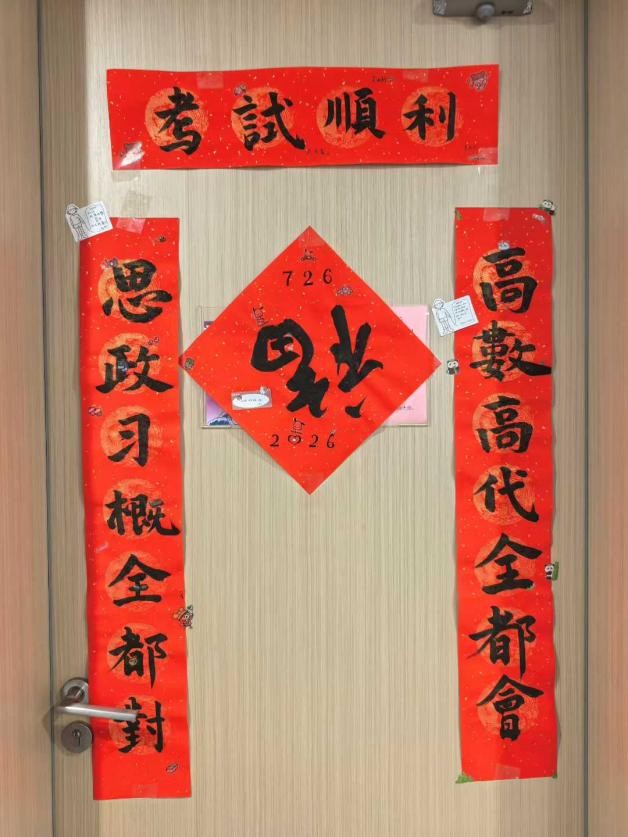 考試順利
高數高代全都會
思政习概全都對
726
福
2026